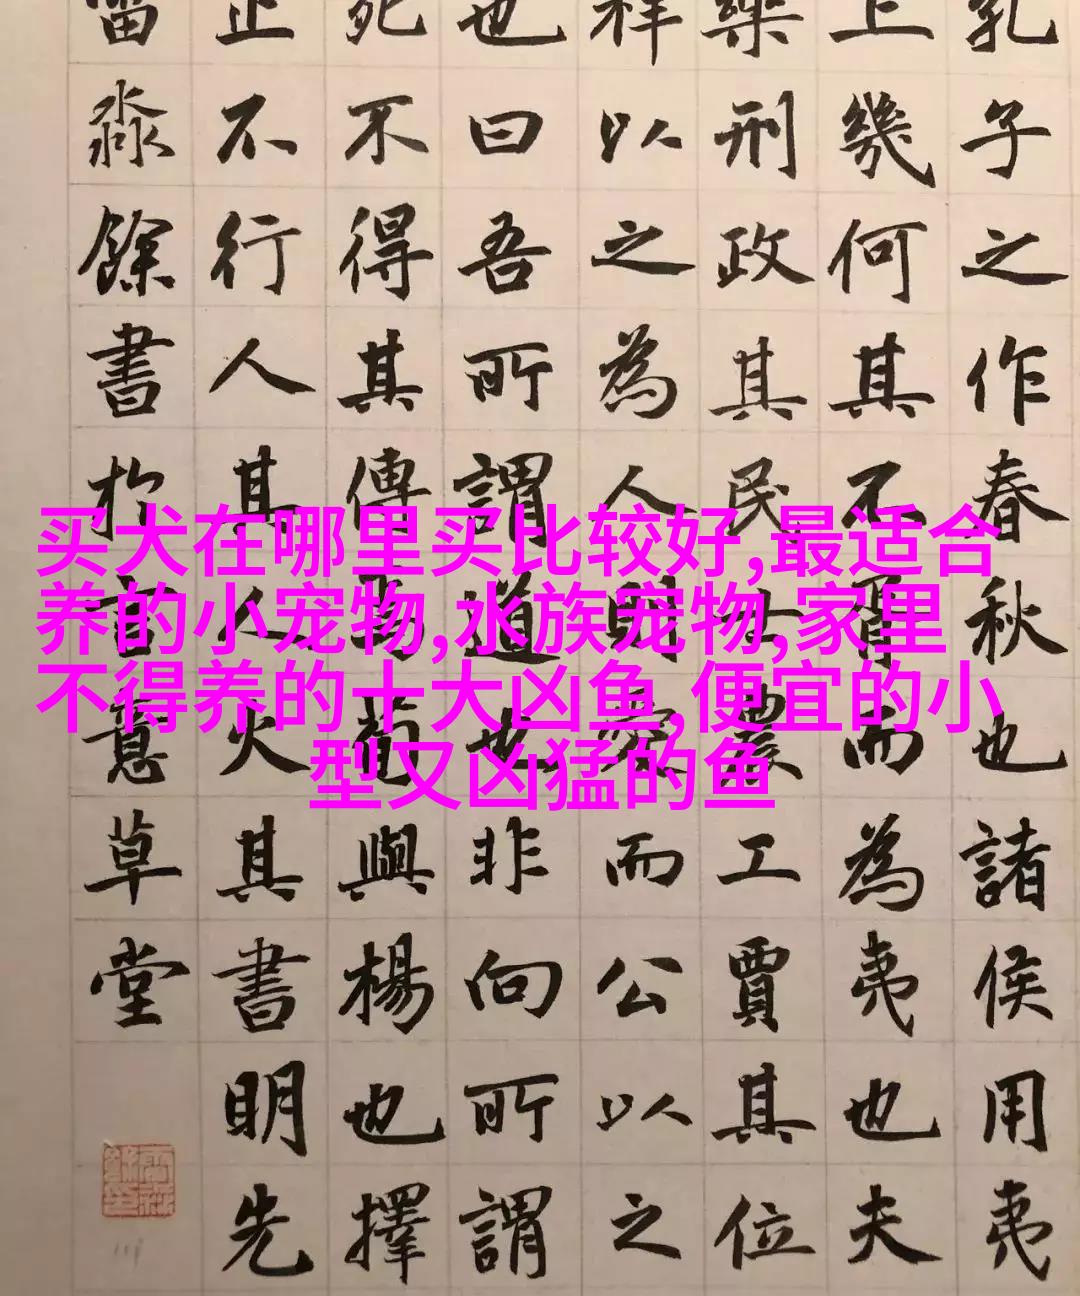 买犬在哪里买比较好,最适合
养的小宠物,水族宠物,家里
不得养的十大凶鱼,便宜的小
型又凶猛的鱼
孔子之作春秋也諸侯用夷
上幾何其不胥而為夷也夫
樂刑政其民士農工賈其位
祥以之為人則愛而公以之
也曰吾所謂道也非向所謂
死不得其傳焉荀與楊也擇
止不行人其人火其書明先
淼餘書於意草堂